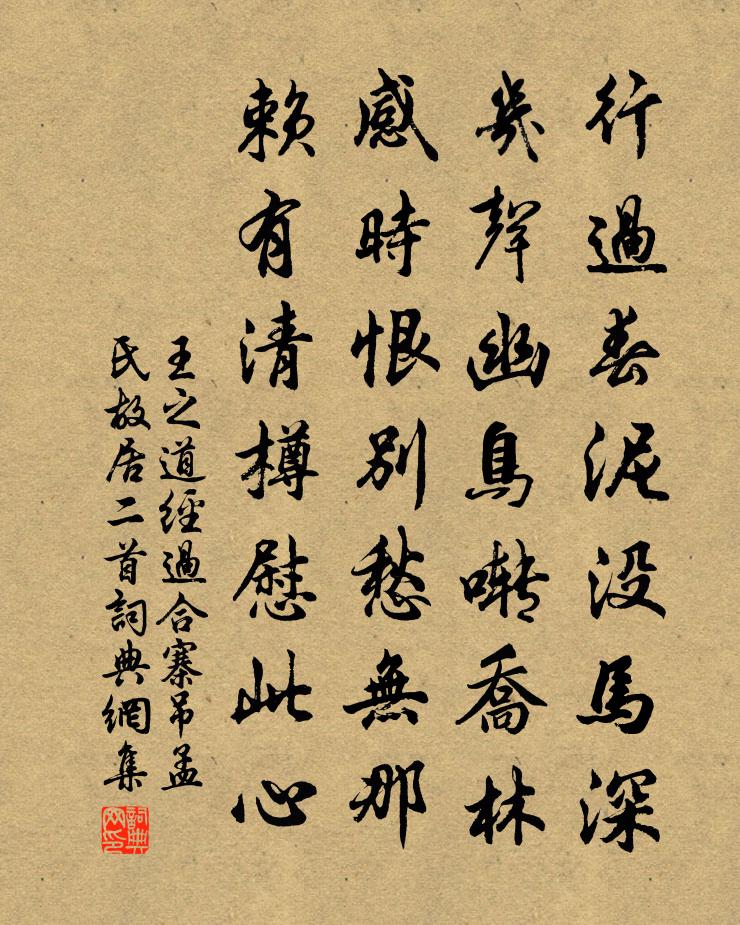 行過春泥没馬深
幾聲幽鳥囀喬林
感時恨別愁無那
賴有清樽慰此心
王之道經過合寨吊孟
氏故居二首詞典網集
詞典
网印